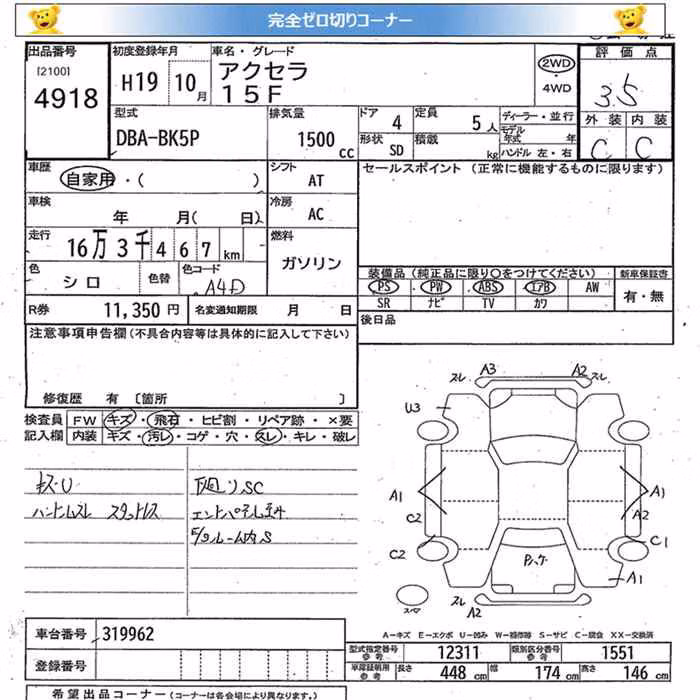 完全ゼロ切りコーナー
出品番号 初度登録年月 車名・グレード 評価点
[2100] 4918 H19 10月 アクセラ 15F 2WD・4WD 3.5
外装 内装
C C
型式 排気量 ドア 4 定員 5人 ディーラー・並行
DBA-BK5P 1500cc 形状 SD 積載 kg モデル年式 年
ハンドル 左・右
車歴 シフト セールスポイント (正常に機能するものに限ります)
自家用・( ) AT
車検 冷房
年 月( 日) AC
走行 16万3千467km 燃料
ガソリン
色 シロ 色替 色コード A4D
装備品 (純正品に限り○をつけてください) 新車保証書
PS PW ABS エアB AW 有・無
SR ナビ TV カワ
R券 11,350円 名変通知期限 月 日
後日品
注意事項申告欄(不具合内容等は具体的に記入して下さい)
修復歴 有 [箇所 ]
検査員 FW キズ・飛石・ヒビ割・リペア跡・×要
記入欄 内装 キズ・汚レ・コゲ・穴・スレ・キレ・破レ
キズU 下廻りSC
ハンドルスレ スタッドレス
スレ A3 A2 スレ
U3
A1 A1
C2 A2
C2 C1
A1
スペア スレ A2
車台番号 319962
A-キズ E-エクボ U-凹み W-補修跡 S-サビ C-腐食 XX-交換済
登録番号
型式指定番号 参考 12311 類別区分番号 参考 1551
車庫証明用 参考 長さ 448cm 幅 174cm 高さ 146cm
希望出品コーナー(コーナーは各会場により異なります。)